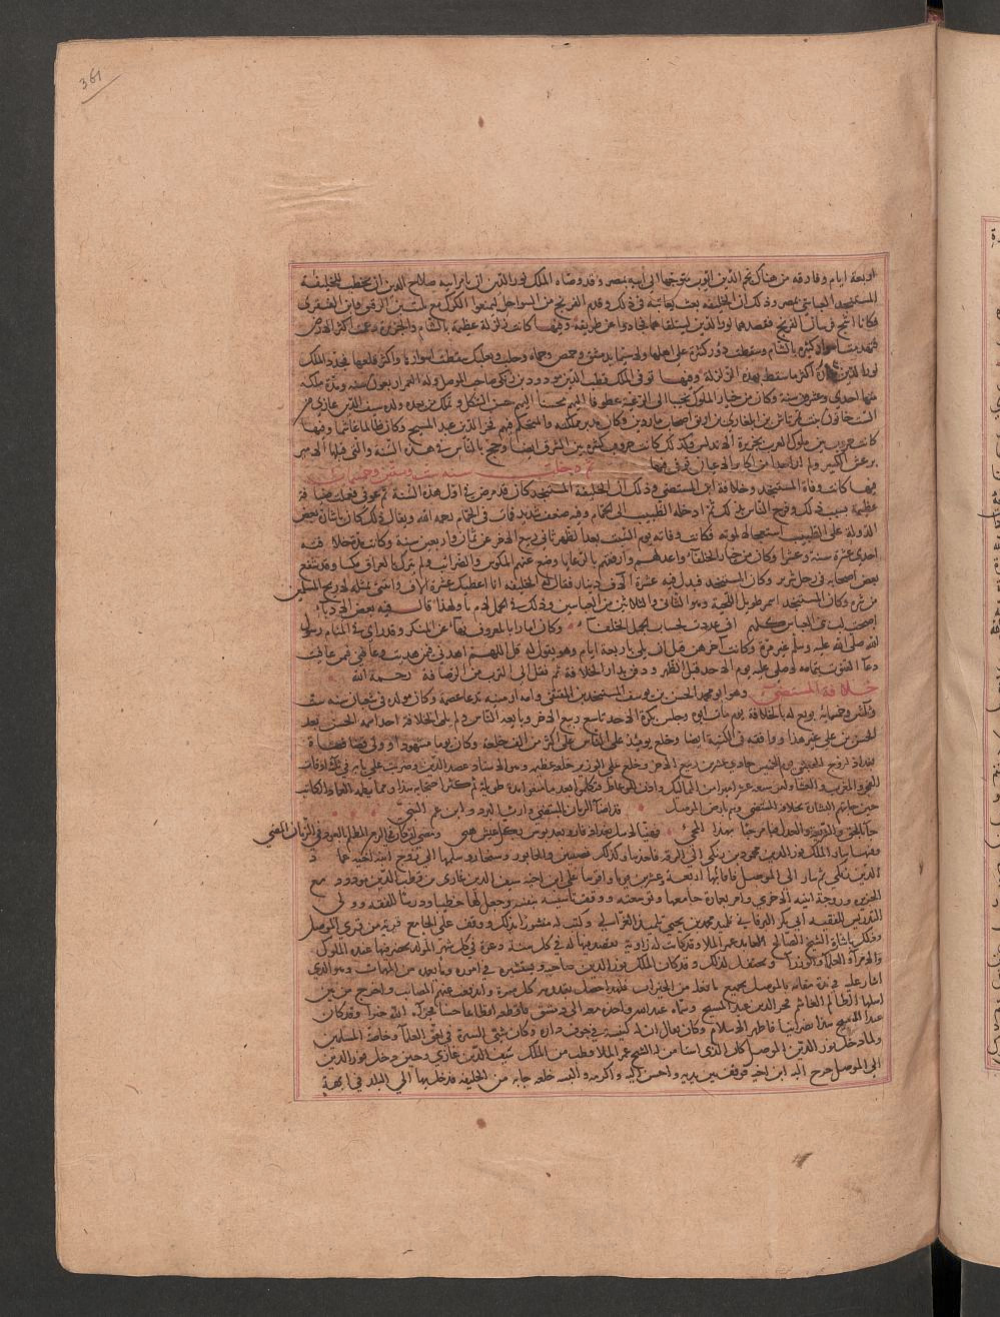 361
اربعة ايام وفارقه من هناك نجم الدين ايوب متوجها الى ابنه بمصر وقد وصاه الملك نور الدين ان يامر ابنه صلاح الدين ان يخطب للخليفة
المستنجد العباسي بمصر وذلك ان الخليفة بعث يعاتبه في ذلك وقدم الفرنج من السواحل ليمنعوا الكرك مع
فكانا اشجع فرسان الفرنج فقصدهما نور الدين ليتلقاهما فحادا عن طريقه وفيها كانت زلزلة عظيمة بالشام والجزيرة وعمت اكثر الارض
وتهدمت اسوار كثيرة بالشام وسقطت دور كثيرة على اهلها ولا سيما بدمشق وحمص وحماه وحلب وبعلبك سقطت اسوارها واكثر قلعتها فجدد الملك
نور الدين اكثر ما سقط بهذه الزلازل وفيها توفي الملك قطب الدين مودود بن زنكي صاحب الموصل وله من العمر اربعون سنة ومدة ملكه
منها احدى وعشرين سنة وكان من خيار الملوك محببا الى الرعية عطوفا اليهم محسنا اليهم حسن الشكل وتملك من بعده ولده سيف الدين غازي من
الست خاتون بنت تمرتاش بن الغازي بن ارتق اصحاب ماردين وكان مدبر مملكته والمتحكم فيها فخر الدين عبد المسيح وكان ظالما غاشما وفيها
كانت حروب بين ملوك الغرب بجزيرة الاندلس وكذلك كانت حروب كثيرة بين الشرق ايضا وحج بالناس في هذه السنة والتي قبلها الامير
برغش الكبير ولم ار احدا من اكابر الاعيان توفي فيها ثم دخلت سنة ست وستين وخمسمائة
فيها كانت وفاة المستنجد وخلافة ابنه المستضي وذلك ان الخليفة المستنجد كان قد مرض في اول هذه السنة ثم عوفي فعمل ضيافة
عظيمة بسبب ذلك وفرح الناس بذلك ثم ادخله الطبيب الى الحمام وفيه ضعف شديد فمات في الحمام رحمه الله ويقال ان ذلك كان باشارة بعض
الدولة على الطبيب استعجالا لموته فكانت وفاته يوم السبت بعد الظهر ثاني ربيع الاخر عن ثمان واربعين سنة وكانت مدة خلافته
احدى عشرة سنة وشهرا وكان من خيار الخلفاء واعدلهم وارفقهم بالرعايا وضع عنهم المكوس والضرائب ولم يترك بالعراق مكسا وقد شفع
بعض اصحابه في رجل شرير وكان المستنجد فبذل فيه عشرة الاف دينار فقال له الخليفة انا اعطيك عشرة الاف وائتني بمثله لاريح المسلمين
من شره وكان المستنجد اسمر طويل اللحية وهو الثاني والثلاثين من العباسيين وذلك في الجمل لام باء ولهذا قال فيه بعض الادباء
اصبحت لب بني العباس كلهم ان عددت بحساب الجمل الخلفا وكان امارا بالمعروف نهاء عن المنكر وقد راى في المنام رسول
الله صلى الله عليه وسلم غير مرة وكانت اخرهن قبل ان يلي باربعة ايام وهو يقول له قل اللهم اهدني فيمن هديت وعافني فيمن عافيت
دعاء القنوت بتمامه وصلي عليه يوم الاحد قبل الظهر ودفن بدار الخلافة ثم نقل الى الترب من الرصافة رحمه الله
خلافة المستضي وهو ابو محمد الحسن بن يوسف المستنجد بن المقتفي وامه ارمنية تدعا عصمة وكان مولده في شعبان سنة ست
وثلاثين وخمسمائة بويع له بالخلافة يوم مات ابوه وجلس بكرة الاحد تاسع ربيع الاخر وبايعه الناس ولم يلي الخلافة احد اسمه الحسن بعد
الحسن بن علي غير هذا ووافقه في الكنية ايضا وخلع يومئذ على الناس على اكثر من الف خلعة وكان يوما مشهودا وولى قضا قضاة
بغداد لروح الحديثي يوم الخميس حادي عشرين ربيع الاخر وخلع على الوزير خلعة عظيمة وهو الاستاد عضد الدين وضربت على بابه في ثلاث اوقات
الفجر والمغرب والعشاء وامر سبعة عشر اميرا من المماليك واذن للوعاظ فتكلموا بعد ما منعوا مدة طويلة ثم كثر احتجابه هذا ومما نظمه العماد الكاتب
حين جاتهم البشارة بخلافة المستضي وهم بارض الموصل قد اضاء الزمان بالمستضي وارث البرد وابن عم النبي
جاء بالحق والشريعة والعدل فيا مرحبا بهذا المحي فهنيئا لاهل بغداد فازوا بعد بوس بكل عيش هني ومضى ان كان في الزمن المظلم بالعود في الزمان المضي
وفيها سار الملك نور الدين محمود بن زنكي الى الرقة فاخذها وكذلك نصيبين والخابور وسنجار وسلمها الى زوج ابنته ابن اخيه عماد
الدين زنكي ثم سار الى الموصل فاقام بها اربعة وعشرين يوما واقرها على ابن اخيه سيف الدين غازي بن قطب الدين مودود مع
الجزيرة وزوجه ابنته الاخرى وامر بعمارة جامعها وتوسعته ووقف تاسيسه بنفسه وجعل له خطيبا ودرسا للفقه وولى
التدريس للفقيه ابي بكر البرقاني تلميذ محمد بن يحيى تلميذ الغزالي وكتب له منشورا بذلك ووقف على الجامع قرية من قرى الموصل
وذلك باشارة الشيخ الصالح العابد عمر الملا وقد كانت له زاوية يقصد فيها وله في كل سنة دعوة في كل شهر المولد يحضر فيها عنده الملوك
والامراء العلماء والوزراء ويحتفل لذلك وقد كان الملك نور الدين صاحبه ويستشيره في اموره وياتمنه من المهمات وهو الذي
اشار عليه في مدة مقامه بالموصل بجميع ما فعل من الخيرات فلهذا حصل بقدومه كل مسرة واندفعت عنهم المصائب واخرج من بين
اهلها الظالم الغاشم فخر الدين عبد المسيح وسماه عبد الله واخذه معه الى دمشق فاقطعه اقطاعا حسنا فجزاه الله خيرا وقد كان
عبد المسيح هذا نصرانيا فاظهر الاسلام وكان يقال ان له كنيسة في جوف داره وكان سيئ السيرة في حق العلماء وخاصة المسلمين
ولما دخل نور الدين الموصل كان الذي استامن له الشيخ عمر الملا وطلب من الملك سيف الدين غازي وحين دخل نور الدين
الى الموصل خرج اليه ابن اخيه فوقف بين يديه واحسن اليه واكرمه والبسه خلعة جاءته من الخليفة فدخل بها الى البلد في ابهة